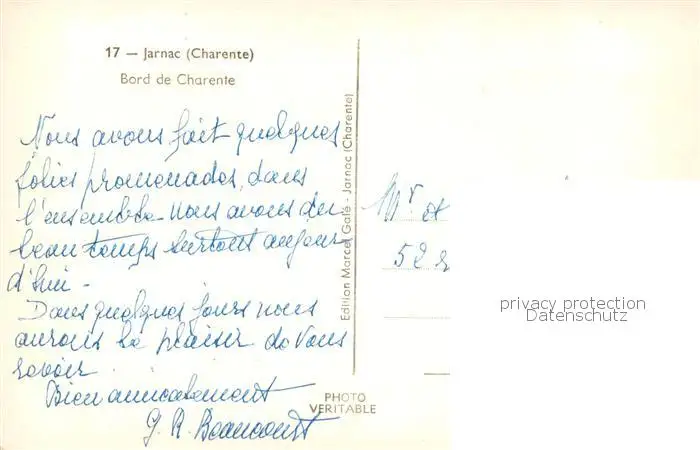 17 — Jarnac (Charente)
Bord de Charente
Nous avons fait quelques
jolies promenades, dans
l'ensemble nous avons du
beau temps surtout aujour
d'hui -
Dans quelques jours nous
aurons le plaisir de vous
revoir
Bien amicalement
J. R. Beaucourt
Edition Marcel Gallé - Jarnac (Charente)
PHOTO
VERITABLE
Mr et
52 r
privacy protection
Datenschutz